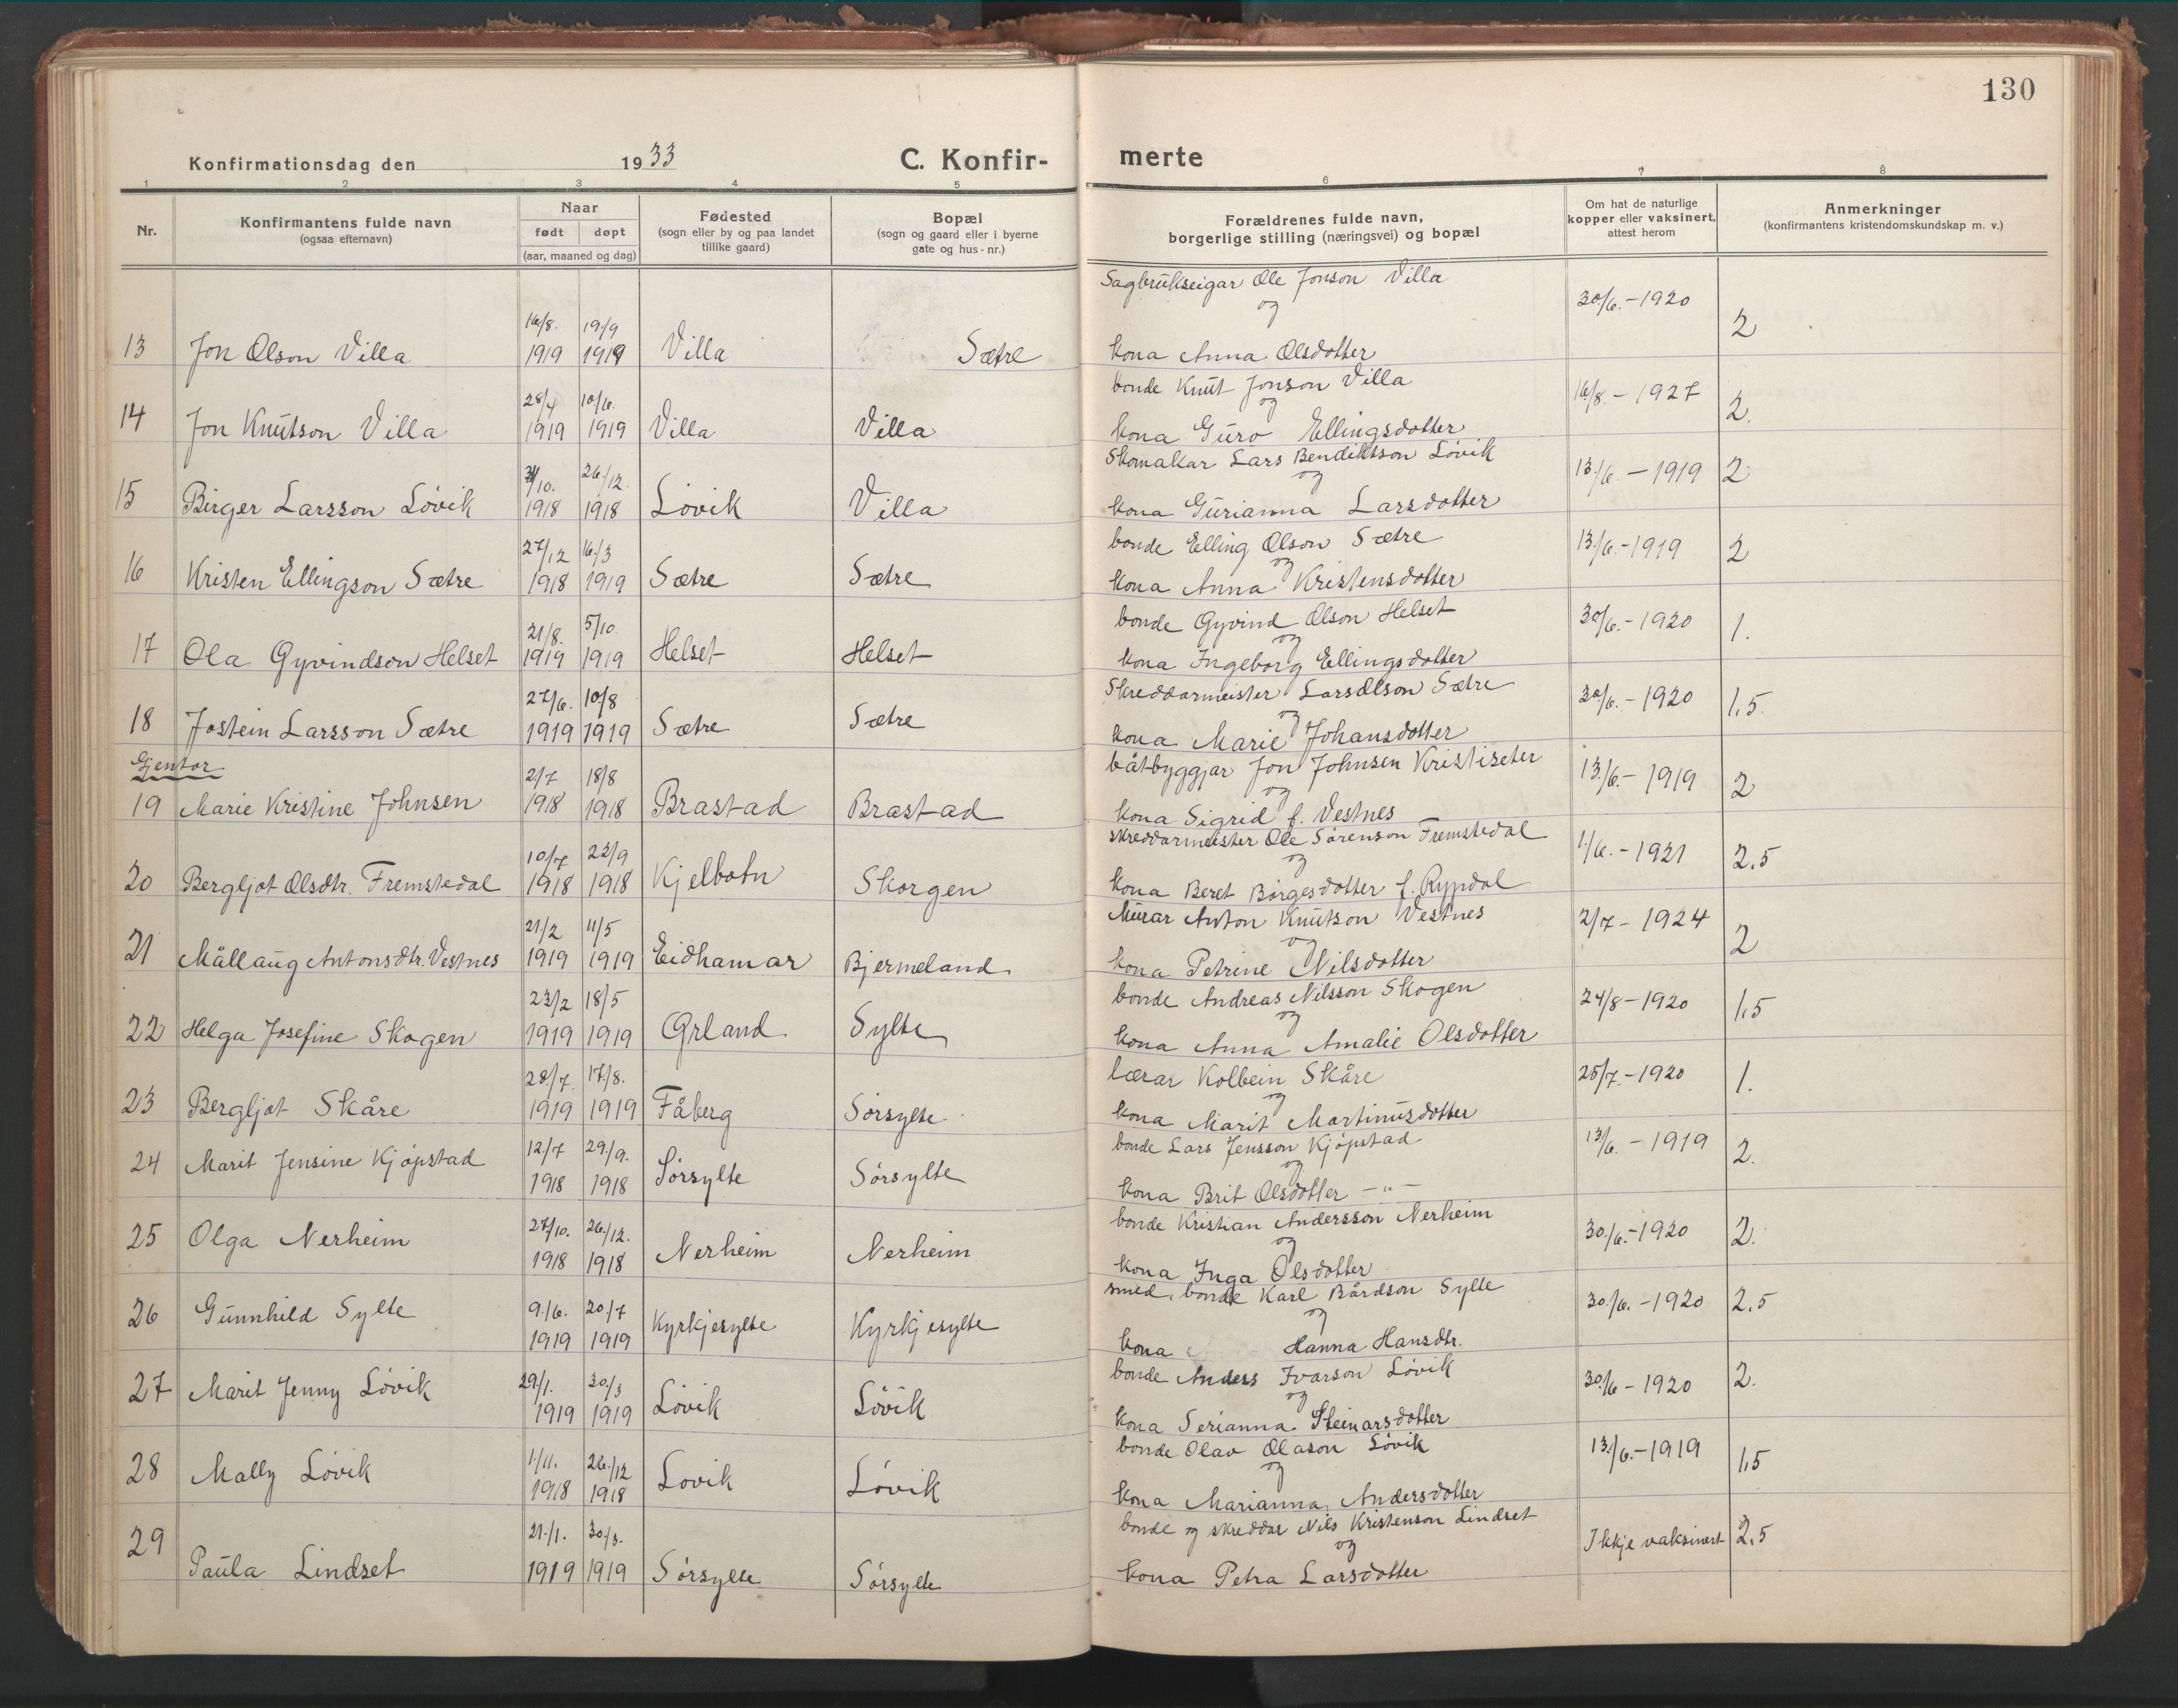 130
Konfirmationsdag den 1933 C. Konfir- merte
1 2 3 4 5 6 7 8
Nr. Konfirmantens fulde navn (ogsaa efternavn) Naar født døpt (aar, maaned og dag) Fødested (sogn eller by og paa landet tillike gaard) Bopæl (sogn og gaard eller i byerne gate og hus-nr.) Forældrenes fulde navn, borgerlige stilling (næringsvei) og bopæl Om hat de naturlige kopper eller vaksinert, attest herom Anmerkninger (konfirmantens kristendomskundskap m. v.)
Sagbrukseigar Ole Jonson Villa
og
13 Jon Olson Villa 16/8. 1919 19/9 1919 Villa Sætre kona Anna Olsdotter 30/6.-1920 2
bonde Knut Jonson Villa
og
14 Jon Knutson Villa 28/4 1919 10/6. 1919 Villa Villa kona Guro Ellingsdotter 16/8.-1927 2.
Skomakar Lars Bendiktson Lövik
og
15 Birger Larsson Lövik 31/10. 1918 26/12. 1918 Lövik Villa kona Gurianna Larsdotter 13./6.-1919 2
bonde Elling Olson Sætre
og
16 Kristen Ellingson Sætre 27/12 1918 16/3 1919 Sætre Sætre kona Anna Kristensdotter 13./6.-1919 2
bonde Gyvind Olson Helset
og
17 Ola Gyvindson Helset 21/8. 1919 5/10. 1919 Helset Helset kona Ingeborg Ellingsdotter 30/6.-1920 1.
Skreddarmeister Lars Olson Sætre
og
18 Jostein Larsson Sætre 27/6. 1919 10/8 1919 Sætre Sætre kona Marie Johansdotter 30/6.-1920 1,5.
Gjentor
båtbyggjar Jon Johnsen Kristiseter
og
19 Marie Kristine Johnsen 2/7 1918 18/8 1918 Brastad Brastad kona Sigrid f. Vestnes 13./6.-1919 2
skreddarmeister Ole Sörenson Fremstedal
og
20 Bergljot Olsdtr. Fremstedal 10/7 1918 22/9 1918 Kjelbotn Skorgen kona Beret Börgesdotter f. Rypdal 1/6.-1921 2.5
Murar Anton Knutson Vestnes
og
21 Målfrid Antonsdtr. Vestnes 21/2 1919 11/5 1919 Eidhamar Bjermeland kona Petrine Nilsdotter 2/7-1924 2
bonde Andreas Nilsson Skogen
og
22 Helga Josefine Skogen 23/2 1919 18/5 1919 Örland Sylte kona Anna Amalie Olsdotter 24/8-1920 1,5
lærar Kolbein Skåre
og
23 Bergljot Skåre 28/7. 1919 17/8. 1919 Fåberg Sörsylte kona Marit Martinusdotter 25/7.-1920 1.
bonde Lars Jensson Kjöpstad
og
24 Marit Jensine Kjöpstad 12/7 1918 29/9. 1918 Sörsylte Sörsylte kona Brit Olsdotter -"- 13/6.-1919 2.
bonde Kristian Andersson Nerheim
og
25 Olga Nerheim 27/10. 1918 26/12. 1918 Nerheim Nerheim kona Inga Olsdotter 30./6.-1920 2.
smed, bonde Karl Bårdson Sylte
og
26 Gunnhild Sylte 9./6. 1919 20/7 1919 Kyrkjesylte Kyrkjesylte kona Hanna Hansdtr. 30./6.-1920 2.5
bonde Anders Ivarson Lövik
og
27 Marit Jenny Lövik 29/1. 1919 30/3 1919 Lövik Lövik kona Serianna Steinarsdotter 30./6-1920 2.
bonde Olav Olason Lövik
og
28 Mally Lövik 1/11. 1918 26./12 1918 Lovik Lövik kona Marianna Andersdotter 13./6.-1919 1,5
bonde og skreddar Nils Kristenson Lindset
og
29 Paula Lindset 21./1. 1919 30./3. 1919 Sörsylte Sörsylte kona Petra Larsdotter Ikkje vaksinert 2.5